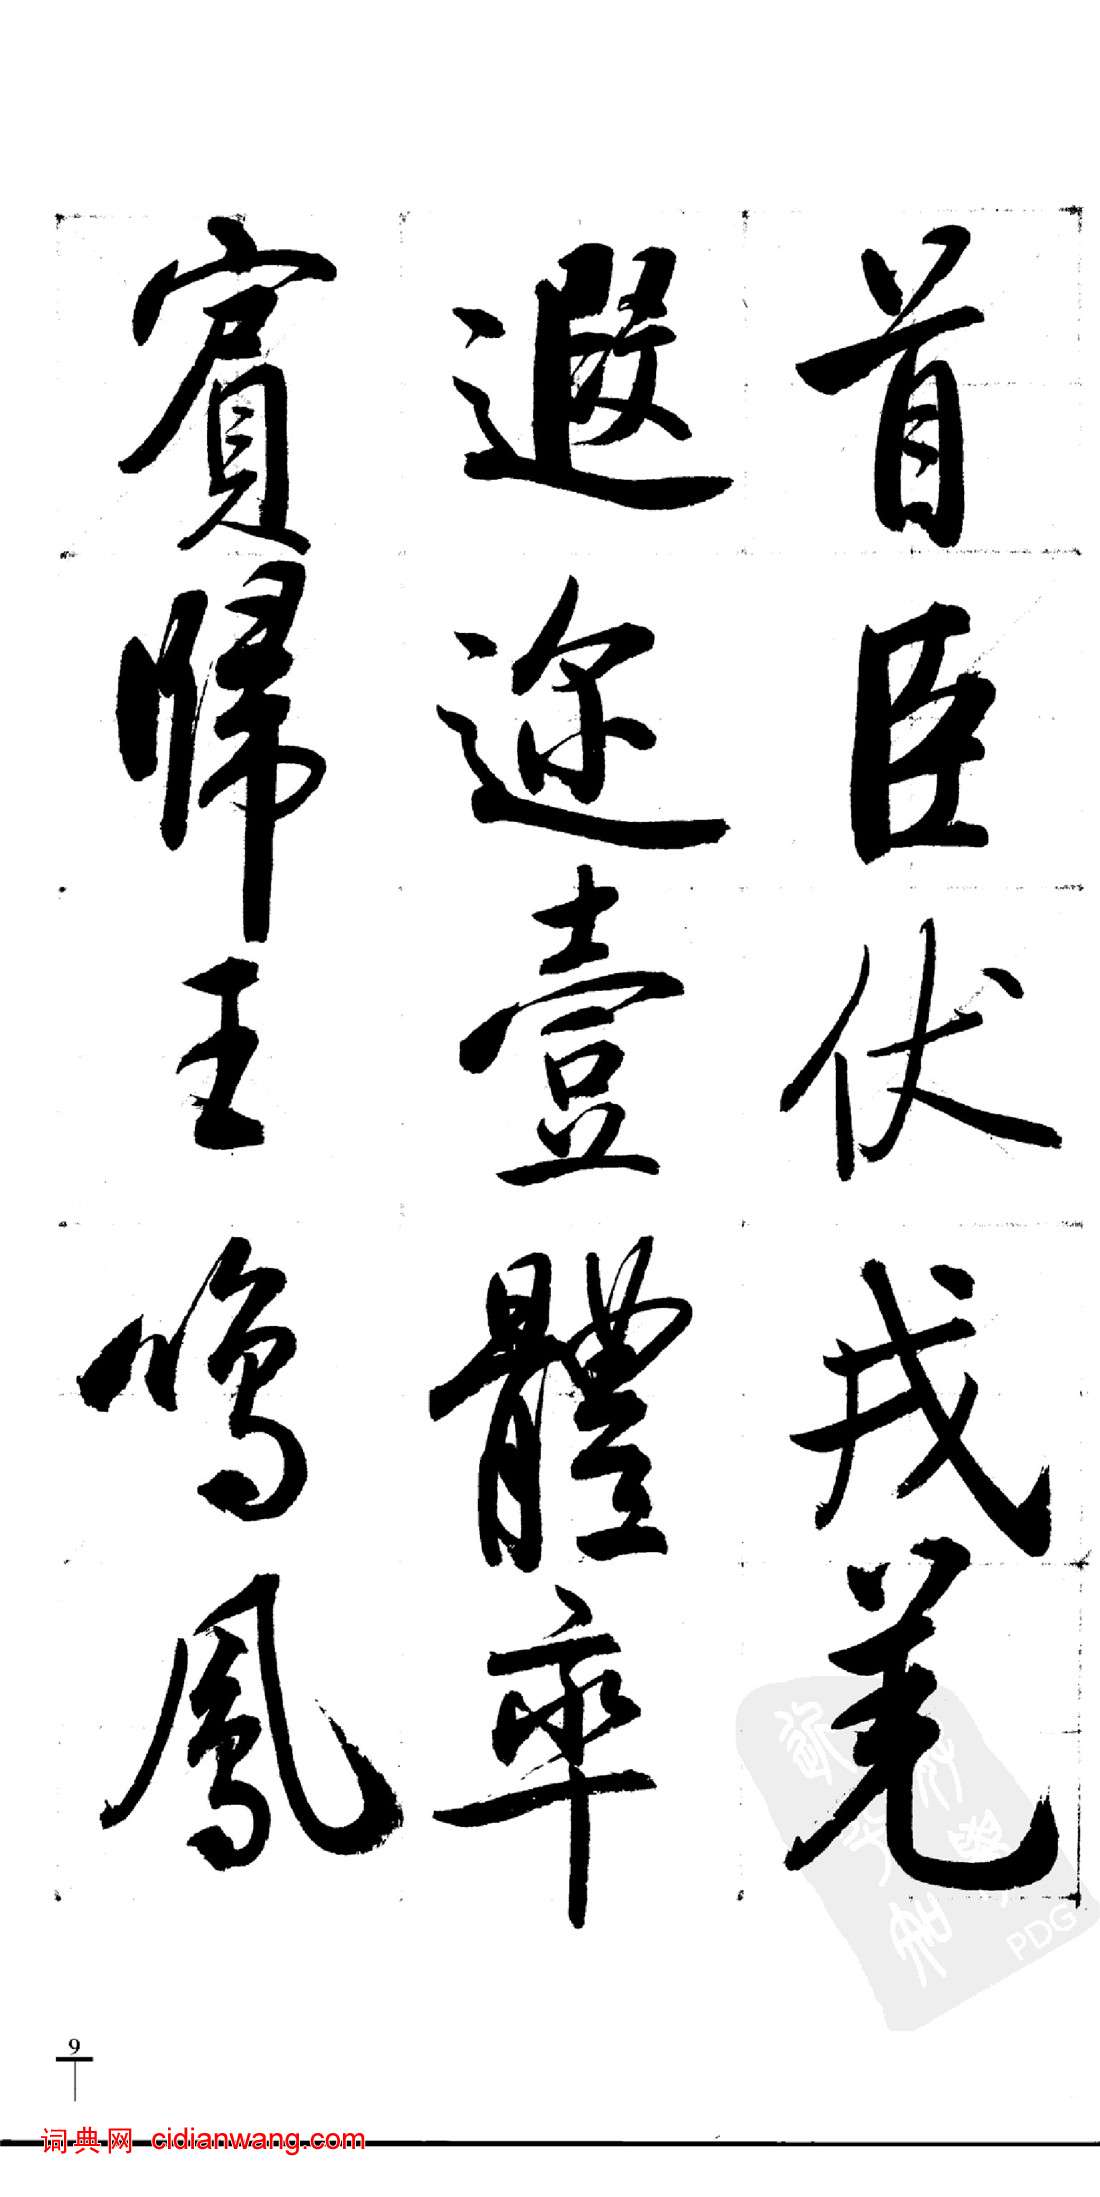 首臣伏戎羌
遐迩壹體率
賓歸王鳴鳳
9
词典网 cidianwang.com
PDG